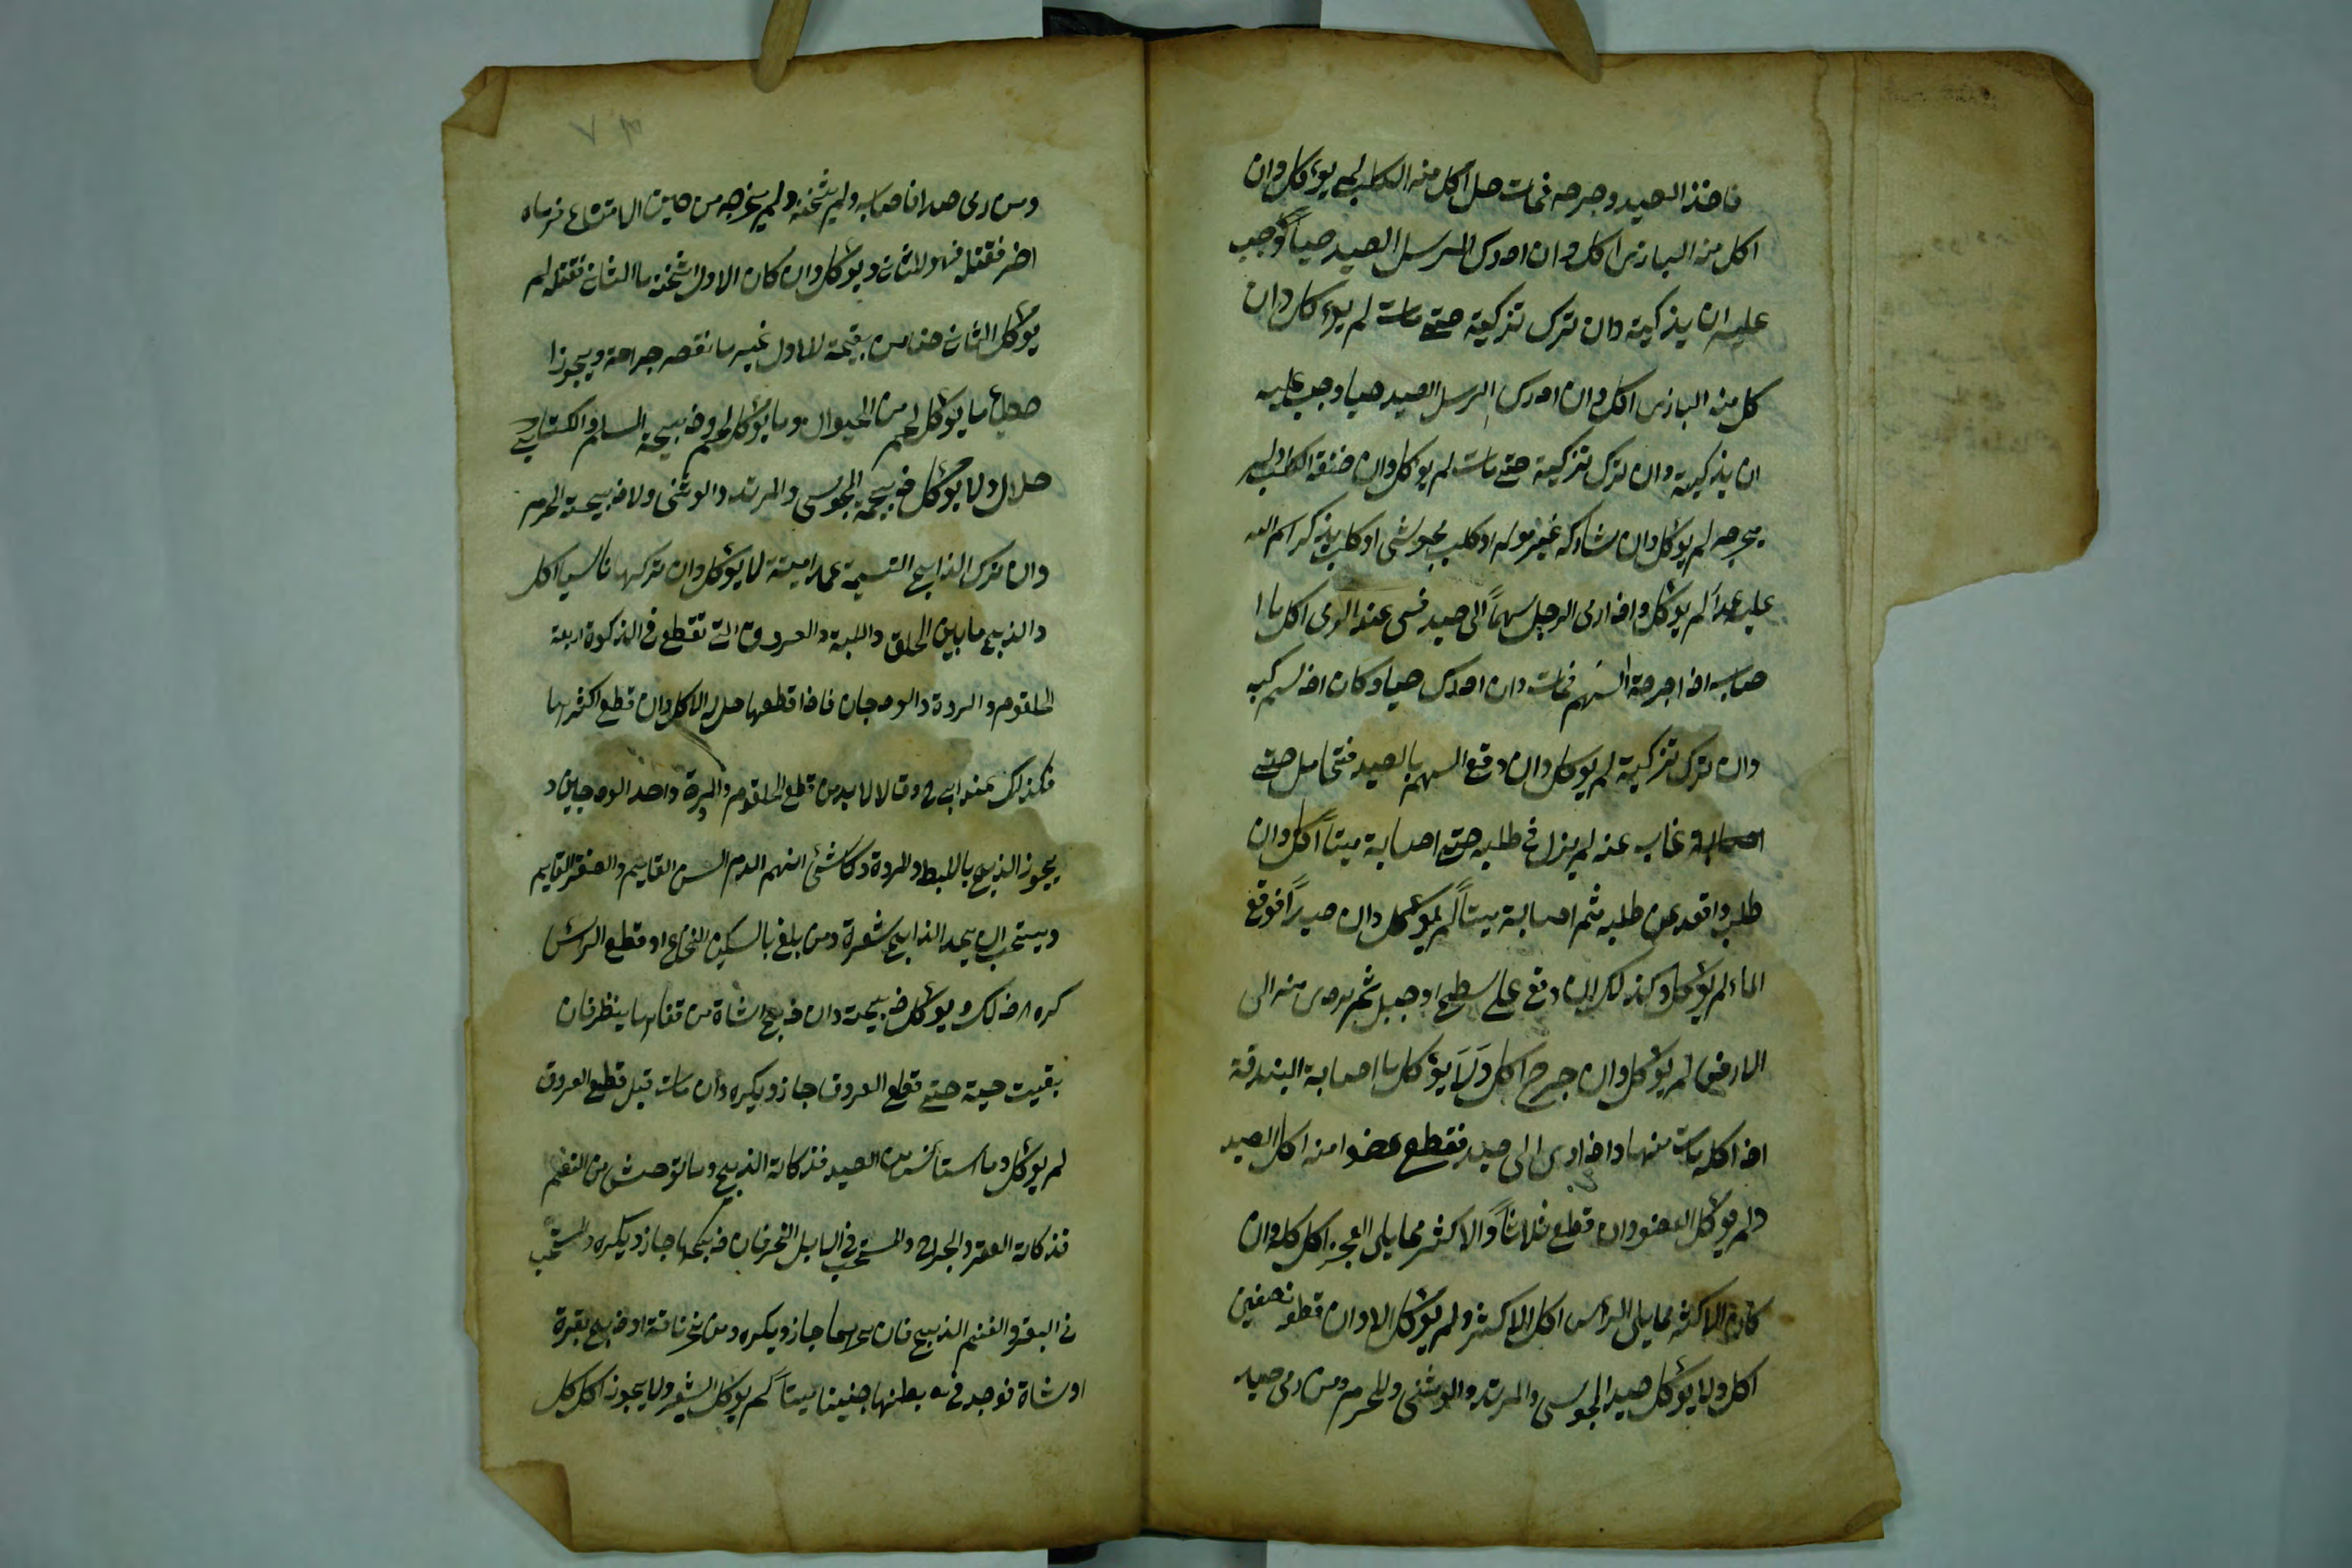 فاخذ الصيد وجرحه فمات حل اكل منه الكلب لم يؤكل وان
اكل منه البازى اكل وان ادرك المرسل الصيد حياً وجب
عليه ان يذكيه وان ترك تذكيته حتى مات لم يؤكل وان
كل منه البازى اكل وان ادرك المرسل الصيد حيا وجب عليه
ان يذكيه وان ترك تذكيته حتى مات لم يؤكل وان خنقه الكلب ولم
يجرحه لم يؤكل وان شاركه غير معلم او كلب مجوسى او كلب يذكر اسم الله
عليه عمداً لم يؤكل واذا رمى الرجل سهماً الى صيد فسمى عند الرمى اكل ما ا
صابه اذا جرحه السهم فمات وان ادرك حيا وكان اذ لم
وان ترك تذكيته لم يؤكل وان وقع السهم بالصيد فتحامل حتى
غاب عنه لم يزل فى طلبه حتى اصابه ميتاً اكل وان
طلبه واقعد عن طلبه ثم اصابه ميتاً لم يؤكل وان صيد فوقع
الماء لم يؤكل وكذلك ان وقع على سطح او جبل ثم تردى منه الى
الارض لم يؤكل وان جرح اكل ولا يؤكل ما اصابه البندقة
اذا مات منها واذا رمى الى صيد فقطع عضوا منه اكل الصيد
ولم يؤكل العضو وان قطع ثلاثاً والاكثر مما يلى العجز اكل كله وان
كان الاكثر مما يلى الرأس اكل الاكثر ولم يؤكل الا وان قطعه نصفين
اكل ولا يؤكل صيد المجوسى والمرتد والوثنى والمحرم ومن رمى صيد
ومن رمى صيدا فاصابه ولم يثخنه ولم يخرجه من حين الامتناع فرماه
اخر فقتله فهو للثانى ويؤكل وان كان الاول اثخنه ما الثانى فقتله لم
يؤكل الثانى ضامن بقيمة للاول غير ما نقصه جراحة ويجوز ا
صطياد ما يؤكل لحم من الحيوان وما يؤكل لحم وذبيحة المسلم والكتابى
حلال ولا يؤكل ذبيحة المجوسى والمرتد والوثنى ولا ذبيحة المحرم
وان ترك الذابح التسمية عمدا ميتة لا يؤكل وان تركها ناسيا اكل
والذبح ما بين الحلق واللبة والعروق التى تقطع فى الذكوة اربعة
الحلقوم والمروة والودجان فاذا قطعها حل له الاكل وان قطع اكثرها
فكذلك عند ابى ح وقالا لا بد من قطع الحلقوم والمروة واحد الودجين و
يجوز الذبح بالليطة والمروة وكل شئ انهر الدم السن القايم والظفر القايم
ويستحب ان يحد الذابح شفرة ومن بلغ بالسكين النخاع او قطع الرأس
كره ذلك ويؤكل ذبيحة وان ذبح شاة من قفاها ينظر فان
بقيت حية حتى قطع العروق جاز ويكره وان مات قبل قطع العروق
لم يؤكل وما استأنس من الصيد فذكاته الذبح وما توحش من النعم
فذكاته العقر والجرح والمستحب فى الابل النحر فان ذبحها جاز ويكره والمستحب
فى البقر والغنم الذبح فان نحرهما جاز ويكره ومن نحر ناقة او ذبح بقرة
او شاة فوجد فى بطنها جنينا ميتاً لم يؤكل الشعر ولا يجوز اكل كل